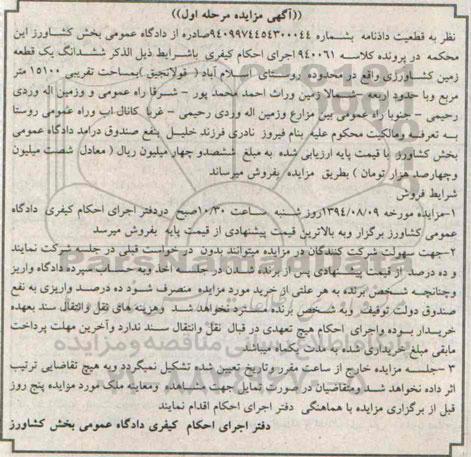 ((آگهی مزایده مرحله اول))
نظر به قطعیت دادنامه بشماره ۹۴۰۹۹۷۴۴۵۴۳۰۰۰۴۴صادره از دادگاه عمومی بخش کشاورز این
محکمه در پرونده کلاسه ۹۴۰۰۶۱اجرای احکام کیفری باشرایط ذیل الذکر ششدانگ یک قطعه
زمین کشاورزی واقع در محدوده روستای اسلام آباد ( قولانجیق )بمساحت تقریبی ۱۵۱۰۰ متر
مربع وبا حدود اربعه –شمالا زمین وراث احمد محمد پور – شرقا راه عمومی و وزمین اله وردی
رحیمی – جنوبا راه عمومی بین مزارع وزمین اله وردی رحیمی – غربا کانال اب وراه عمومی روستا
به تعرفه ومالکیت محکوم علیه بنام فیروز نادری فرزند خلیل بنفع صندوق درامد دادگاه عمومی
بخش کشاورز با قیمت پایه ارزیابی شده به مبلغ ششصدو چهار میلیون ریال ( معادل شصت میلیون
وچهارصد هزار تومان ) بطریق مزایده بفروش میرساند
شرایط فروش
۱-مزایده مورخه ۱۳۹۴/۰۸/۰۹روز شنبه ساعت ۱۰/۳۰صبح دردفتر اجرای احکام کیفری دادگاه
عمومی کشاورز برگزار وبه بالاترین قیمت پیشنهادی از قیمت پایه بفروش میرسد
۲-جهت سهولت شرکت کنندگان در مزایده میتوانند بدون در خواست قبلی در جلسه شرکت نمایند
و ده درصد از قیمت پیشنهادی پس از برنده شدن در جلسه اخذ وبه حساب سپرده دادگاه واریز
وچنانچه شخص برنده به هر علتی از خرید مورد مزایده منصرف شود ده درصد واریزی به نفع
صندوق دولت توقیف وبه شخص برنده مسترد نخواهد شد وهزینه های نقل وانتقال سند بعهده
خریدار بوده واجرای احکام هیچ تعهدی در قبال نقل وانتقال سند ندارد وآخرین مهلت پرداخت
مابقی مبلغ خریداری شده به مدت یکماه میباشد
۳-جلسه مزایده خارج از ساعت مقرر وتاریخ تعیین شده تشکیل نمیگردد وبه هیچ تقاضایی ترتیب
اثر داده نخواهد شد ومتقاضیان در صورت تمایل جهت مشاهده ومعاینه ملک مورد مزایده پنج روز
قبل از برگزاری مزایده با هماهنگی دفتر اجرای احکام اقدام نمایند
دفتر اجرای احکام کیفری دادگاه عمومی بخش کشاورز